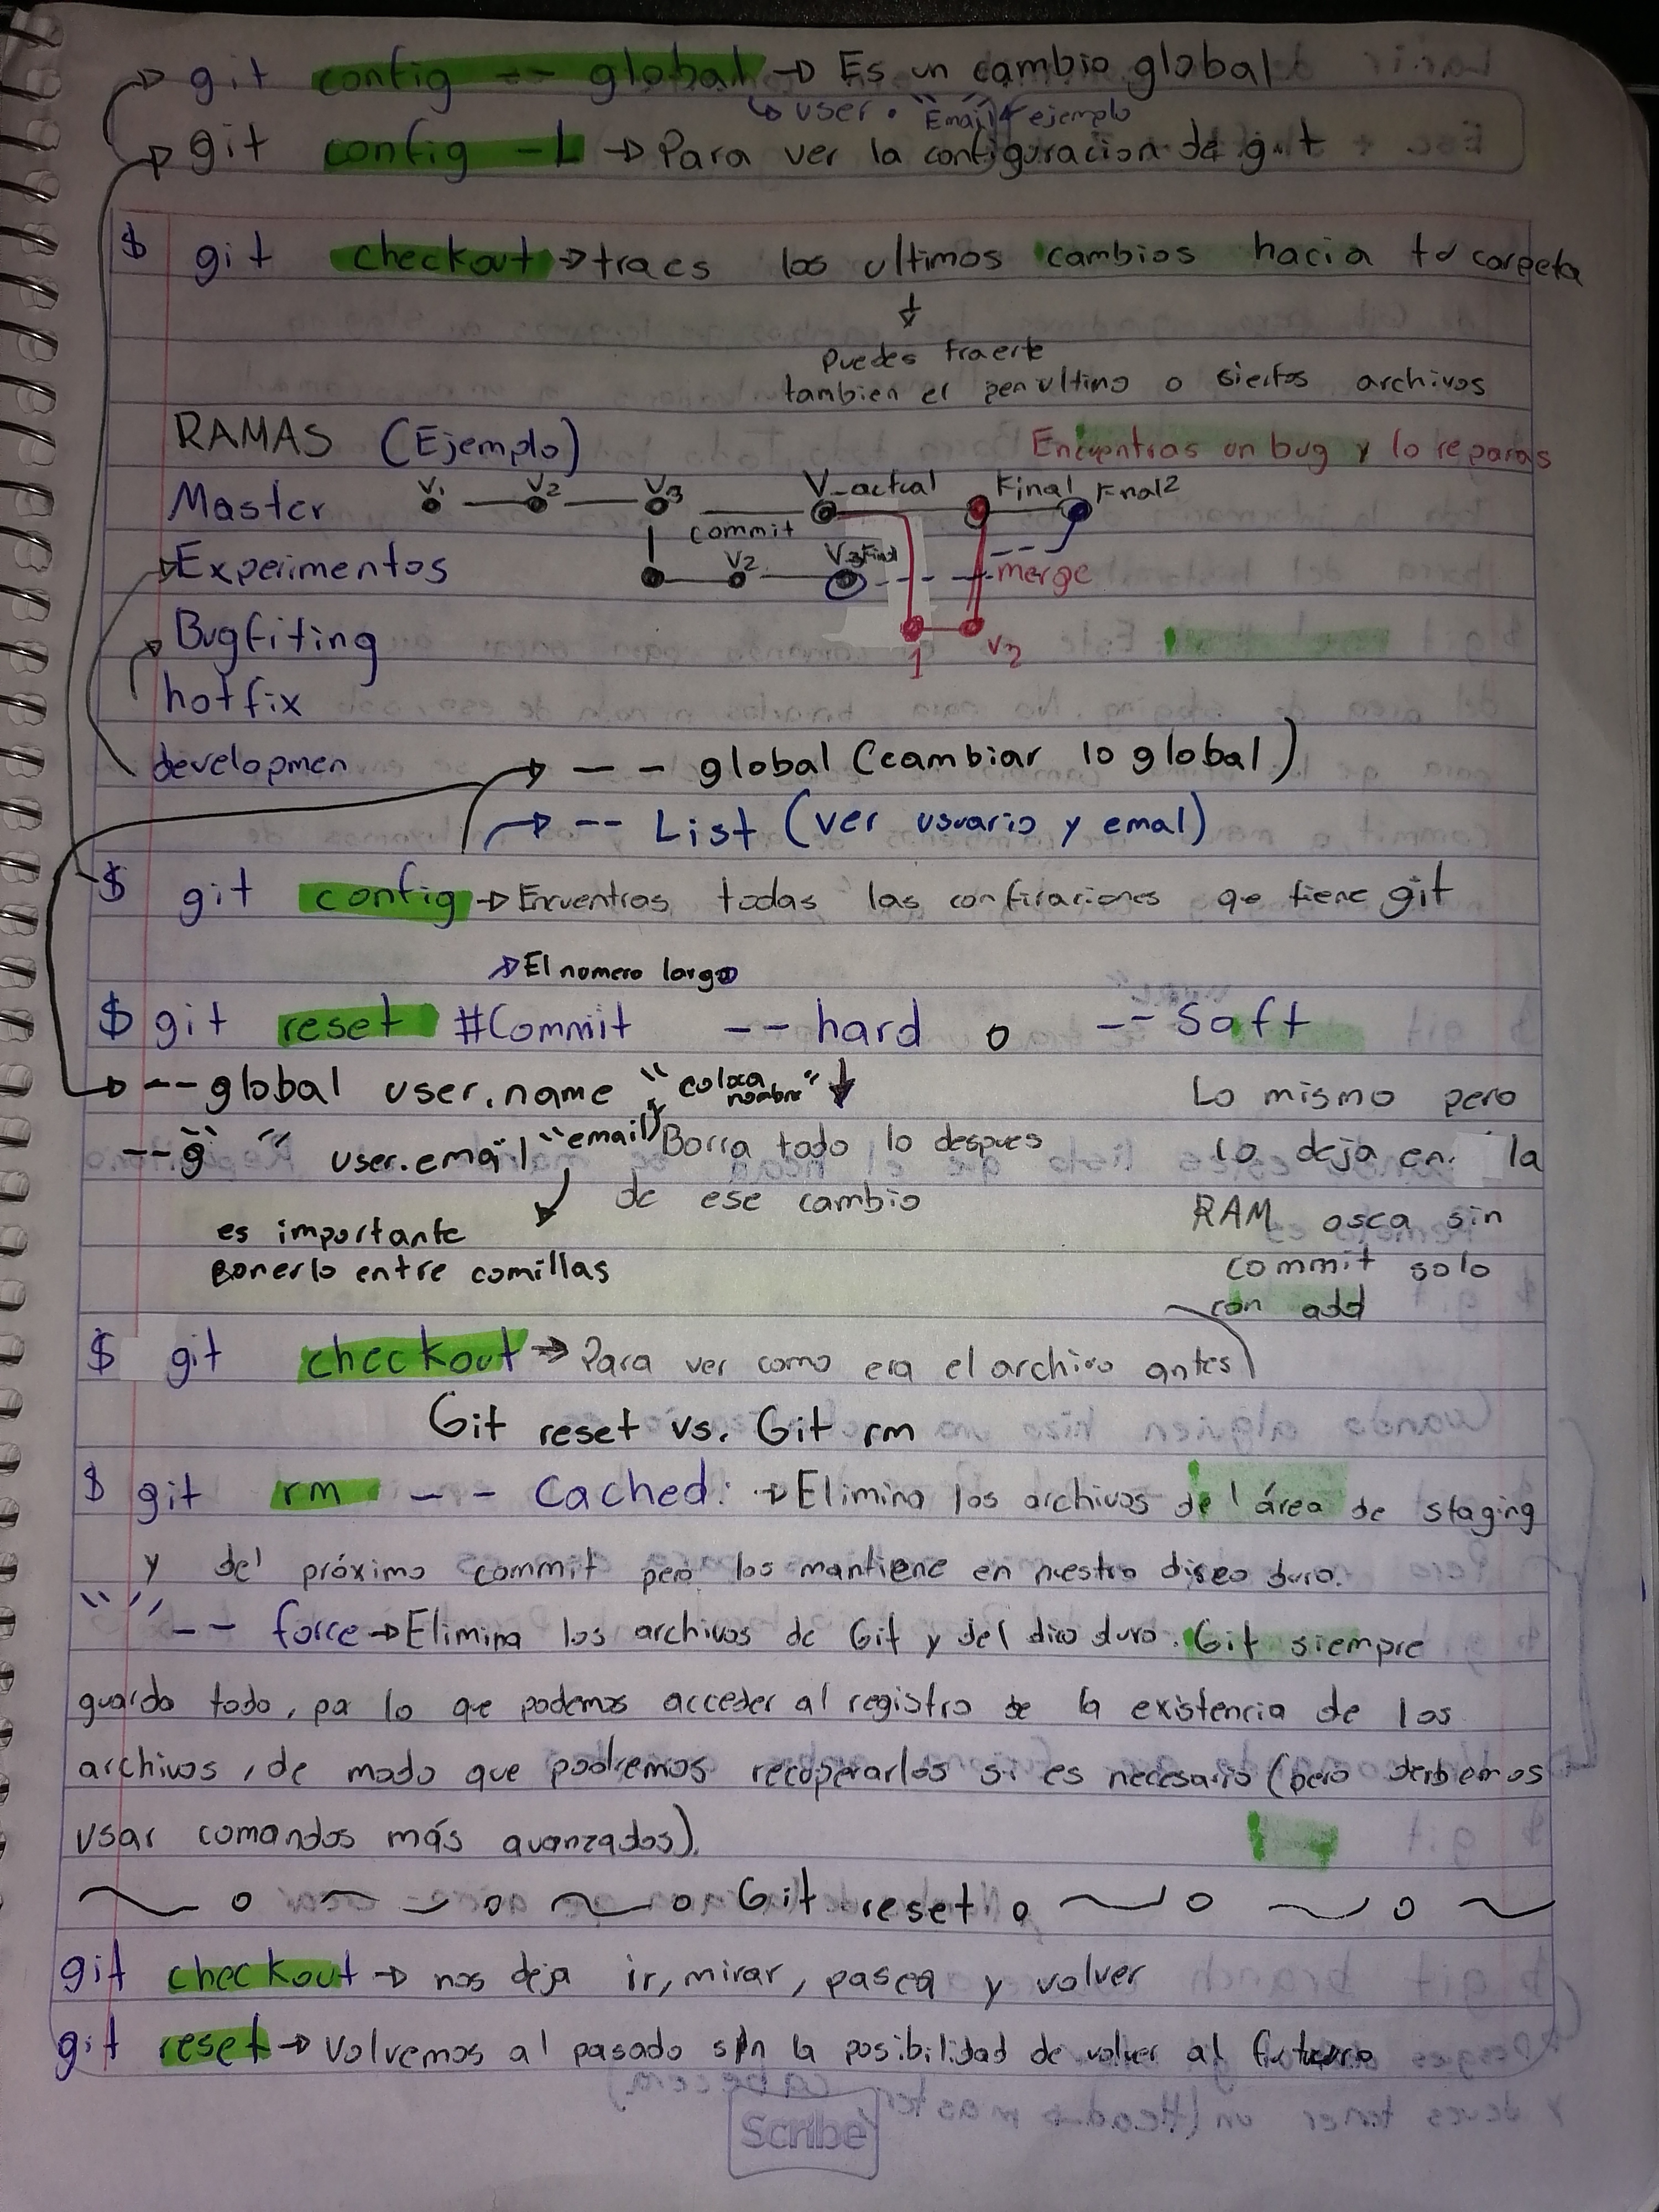 git config -- global → Es un cambio global
↳ user. "Email" ejemplo
git config -L → Para ver la configuracion de git
$ git checkout → traes los ultimos cambios hacia tu carpeta
↓
Puedes traerte
tambien el penultimo o siertos archivos
RAMAS (Ejemplo)
Encuentras un bug y lo reparas
Master V1 V2 V3 V_actual Final Final2
commit
Experimentos V2 V3 Final merge
Bugfiting 1 V2
hotfix
developmen → -- global (cambiar lo global)
→ -- List (ver usuario y emal)
$ git config → Encuentras todas las configuraciones que tiene git
→ El numero largo
$ git reset #Commit --hard o --Soft
→ --global user.name "coloca nombre" ↓ Lo mismo pero
--g " " user.email "email" Borra todo lo despues lo deja en la
de ese cambio RAM osea sin
es importante
ponerlo entre comillas commit solo
con add
$ git checkout → Para ver como era el archivo antes
Git reset vs. Git rm
$ git rm -- Cached: → Elimina los archivos del área de staging
y del próximo commit pero los mantiene en nuestro disco duro.
" " -- force → Elimina los archivos de Git y del disco duro. Git siempre
guarda todo, por lo que podemos acceder al registro de la existencia de los
archivos, de modo que podremos recuperarlos si es necesario (pero debemos
usar comandos más avanzados).
Git reset
git checkout → nos deja ir, mirar, pasea y volver
git reset → Volvemos al pasado sin la posibilidad de volver al futuro
Scribe